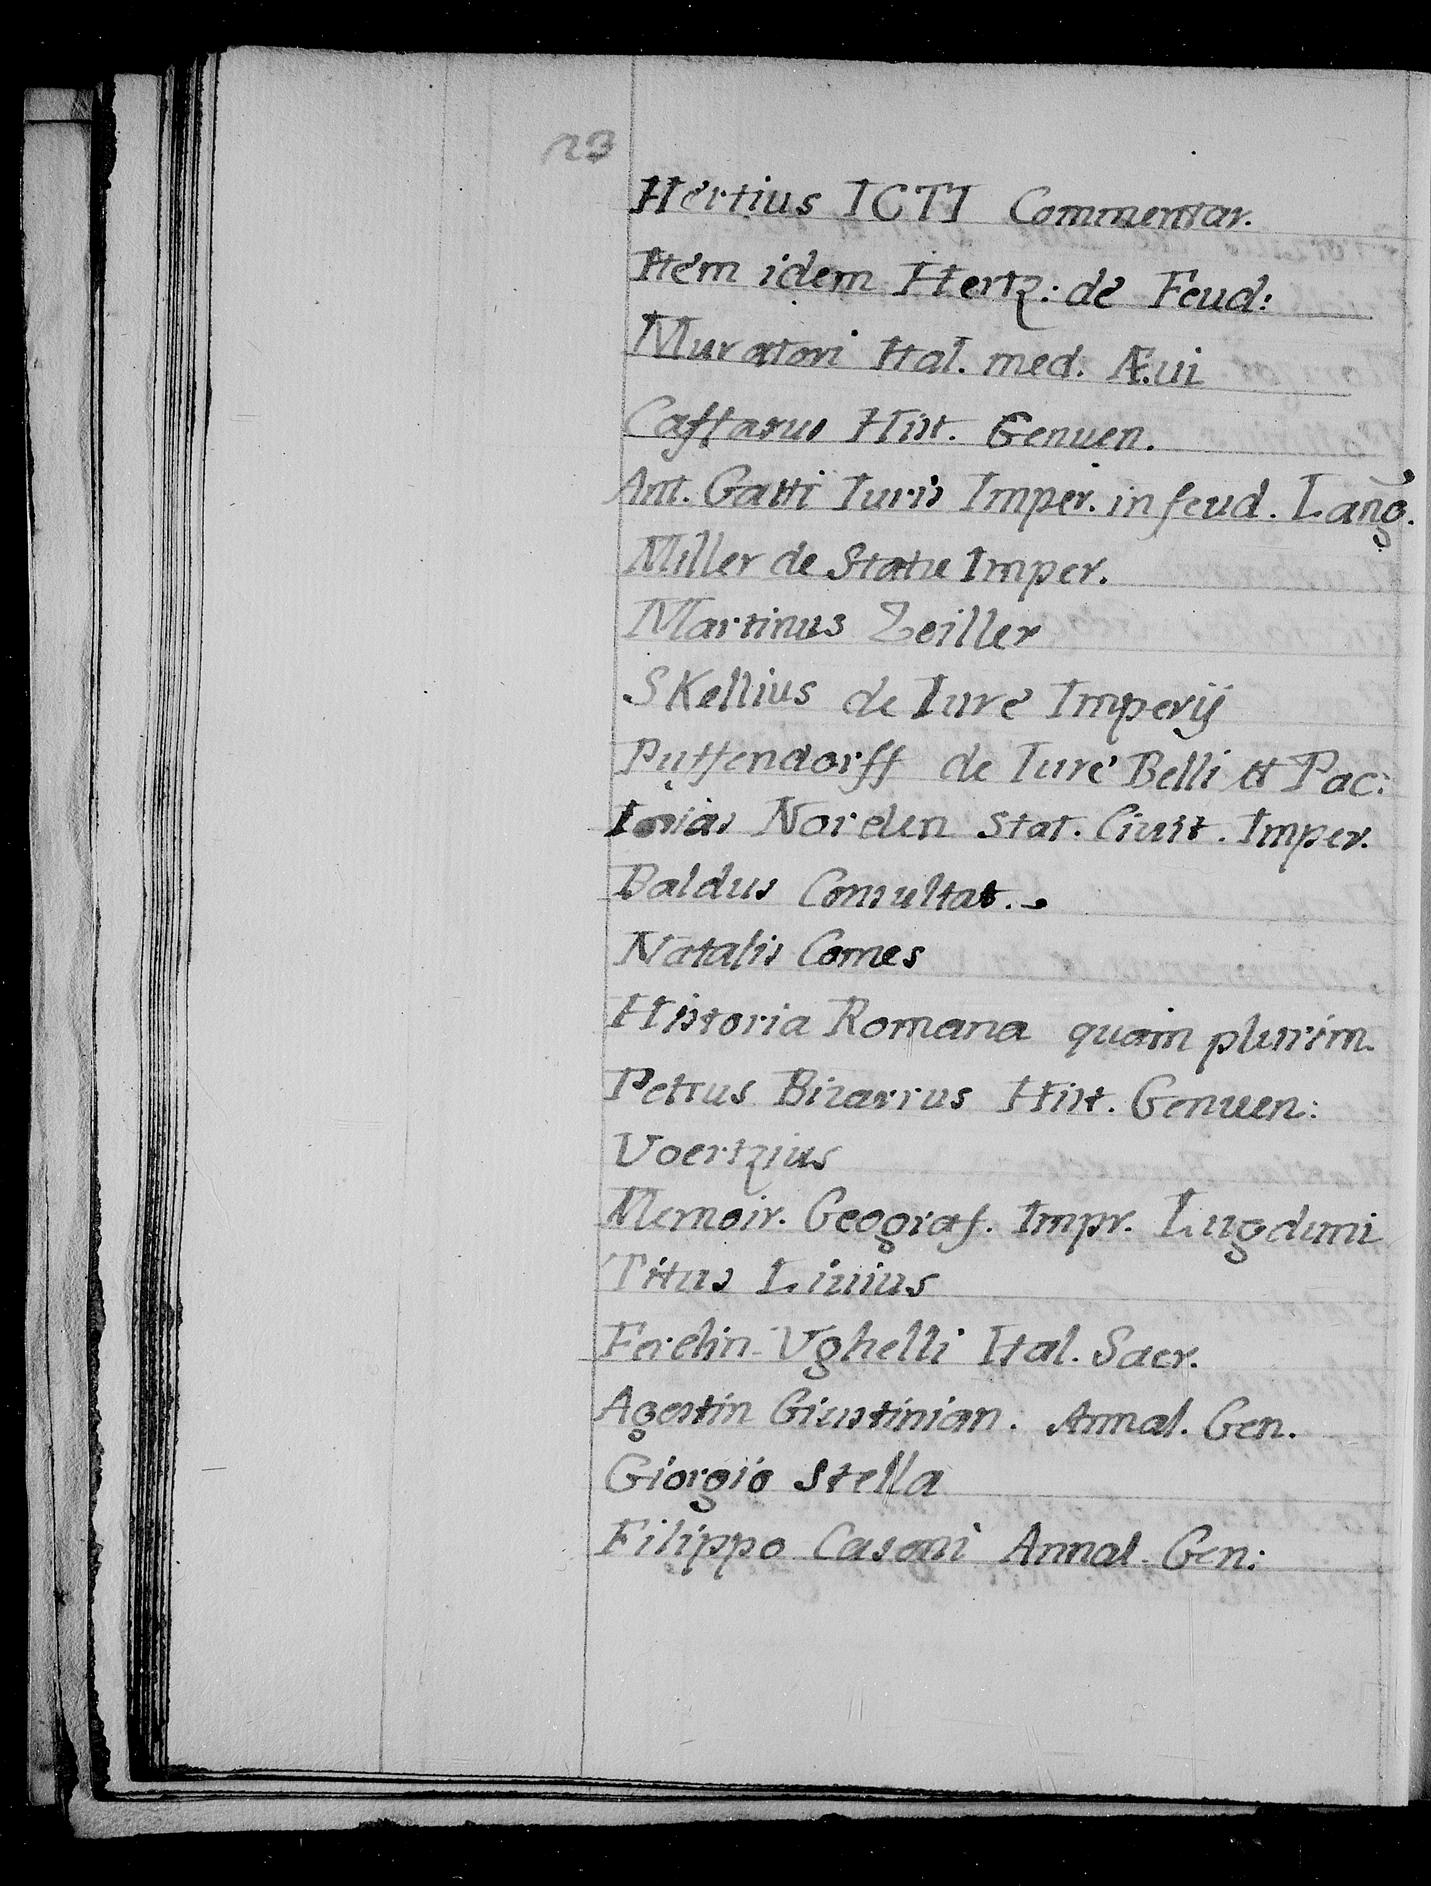 23
Hertius ICTI Commentar.
Item idem Hertz: de Feud:
Muratori Ital. med. Æui
Caffarus Hist. Genuen.
Ant. Gatti Iuris Imper. in feud. Lang.
Miller de Statu Imper.
Martinus Zeiller
SKellius de Iure Imperij
Puffendorff de Iure Belli et Pac:
Iosias Norden Stat. Ciuit. Imper.
Baldus Consultat.
Natalis Comes
Historia Romana quam plurim.
Petrus Bizarrus Hist. Genuen:
Voertzius
Memoir. Geograf. Impr. Lugduni
Titus Liuius
Ferdin. Vghelli Ital. Sacr.
Agostin Giustinian. Annal. Gen.
Giorgio Stella
Filippo Casoni Annal. Gen: